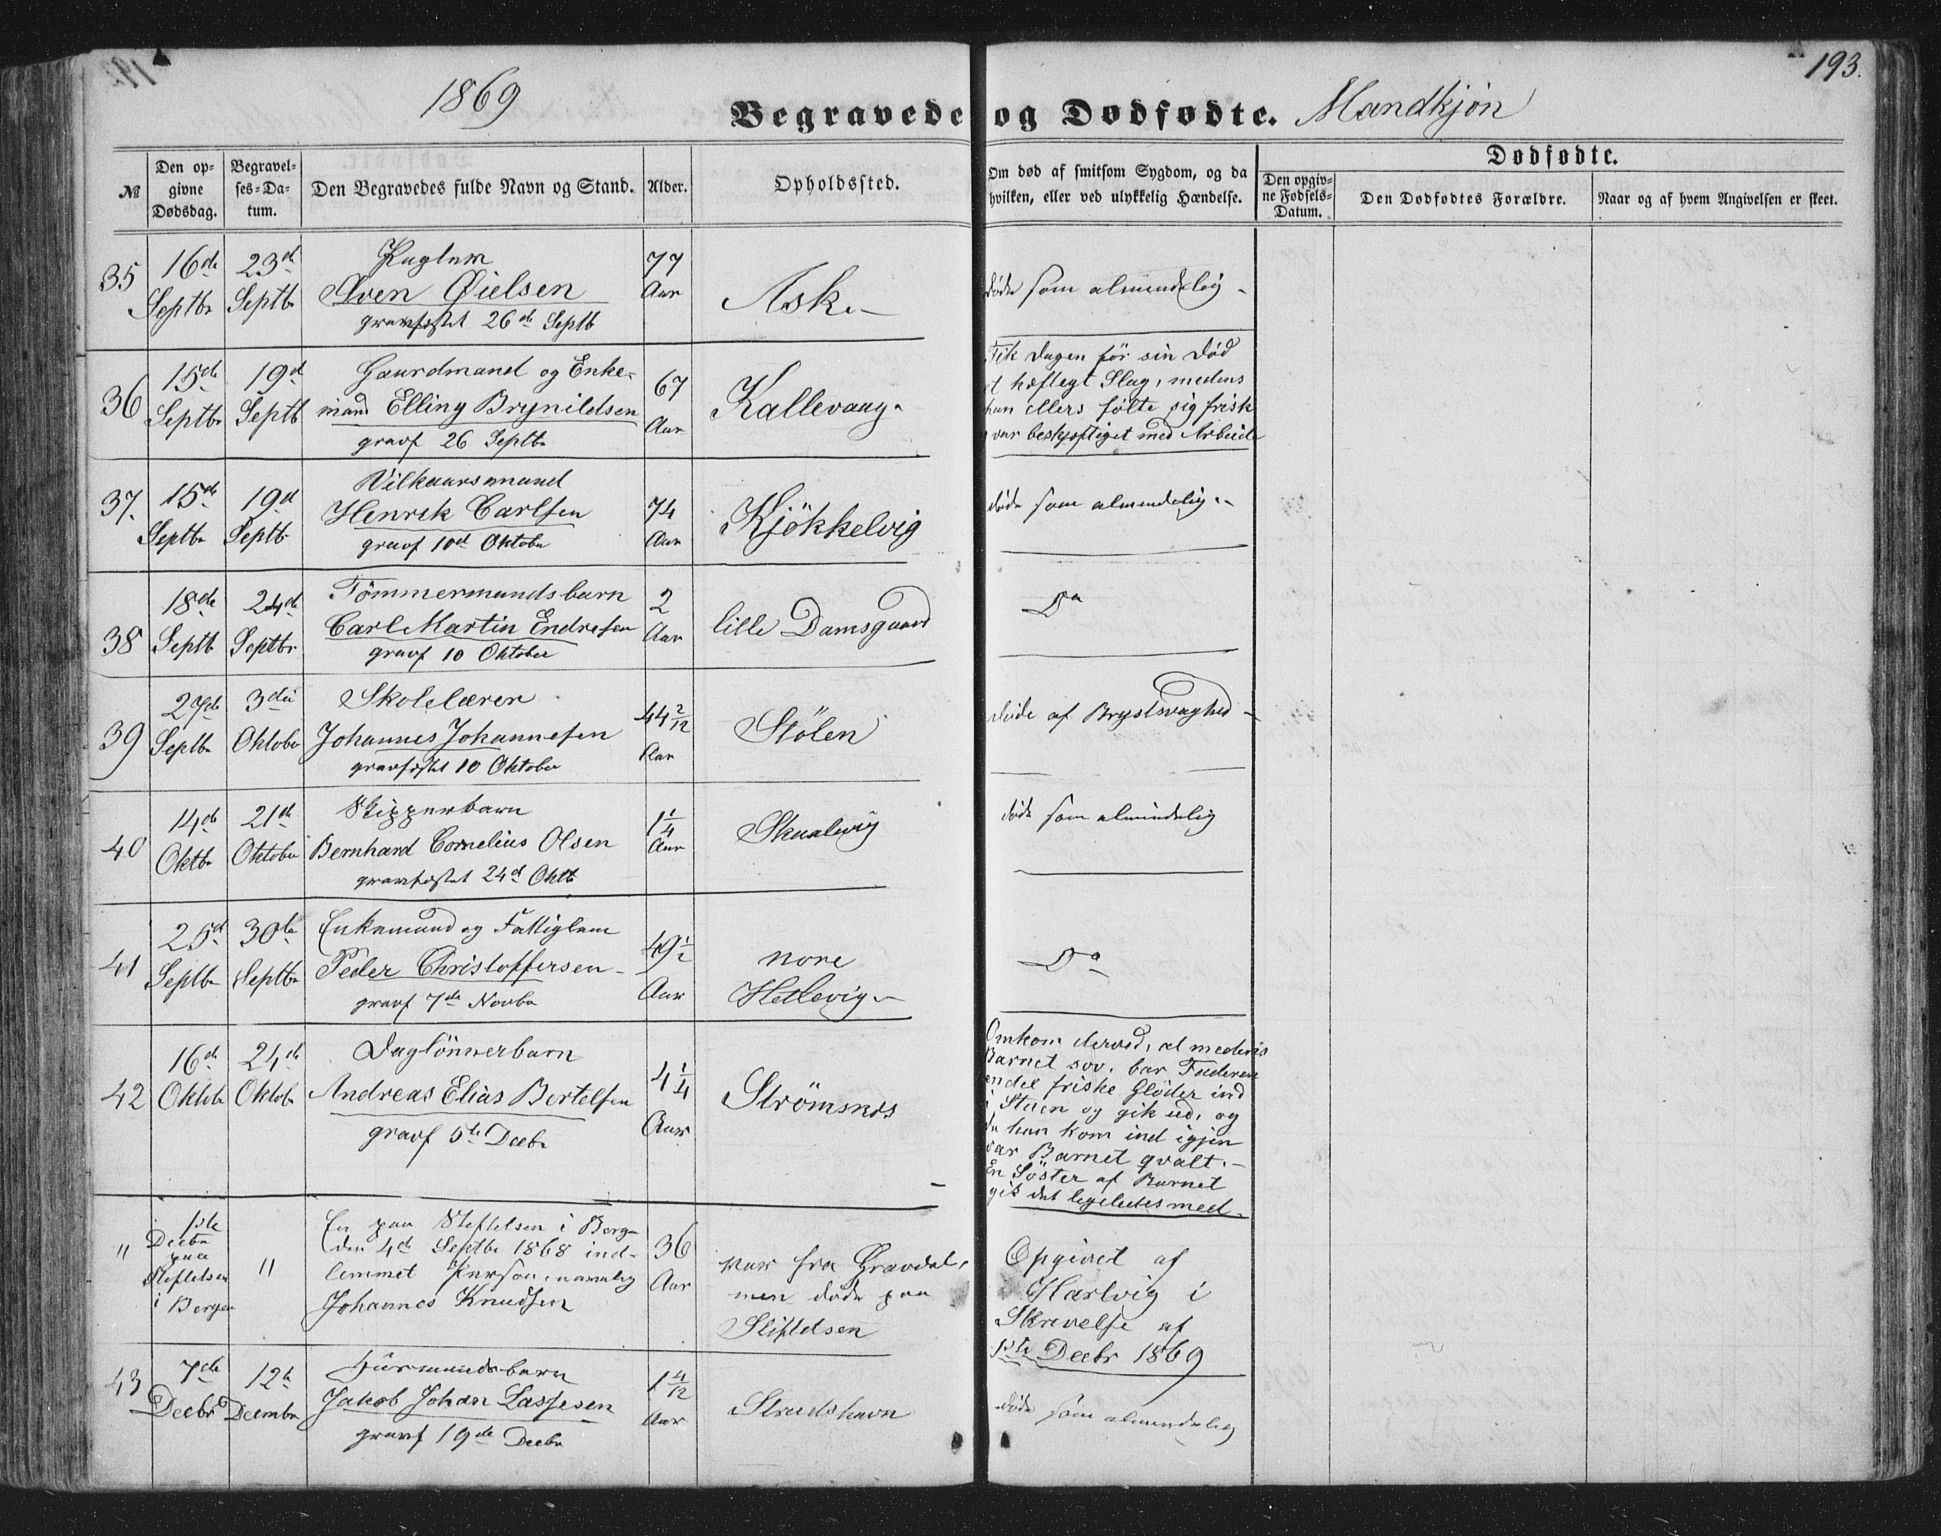 193.
1869
Begravede og Dødfødte. Mandkjøn
№
Den opgivne Dødsdag.
Begravelses-Datum.
Den Begravedes fulde Navn og Stand.
Alder.
Opholdssted.
Om død af smitsom Sygdom, og da hvilken, eller ved ulykkelig Hændelse.
Dødfødte.
Den opgivne Fødsels-Datum.
Den Dødfødtes Forældre.
Naar og af hvem Angivelsen er skeet.
35
16de Septbr
23d Septbr
Fuglem
Sven Øielsen
gravfæstet 26de Septb
77 Aar
Ask
døde som almindelig
36
15de Septbr
19d Septb
Gaardmand og Enke-
mand Elling Brynildsen
gravf 26 Septbr
67 Aar
Kallevaag
Fik Dagen før sin Død
et hæftegt Slag, medens
han ellers følte sig frisk
var beskjæftiget med Arbeide
37.
15de Septbr
19d Septbr
Vilkaarsmand
Henrik Carlsen
gravf 10d Oktober
74 Aar
Kjøkkelvig
døde som almindelig
38
18de Septb
24de Septbr
Tömmermandsbarn
Carl Martin Endresen
gravf 10 Oktober
2 Aar
lille Damsgaard
Do
39
27de Septbr
3die Oktober
Skolelærer
Johannes Johannesen
gravfæstet 10 Oktober
44 2/12 Aar
Stölen
døde af Brystsvaghed
40
14de Oktbr
21de Oktober
Skipperbarn
Bernhard Cornelius Olsen
gravfæstet 24d Oktb
1 1/4 Aar
Skaalevig
døde som almindelig
41
25d Septbr
30te Septbr
Enkemand og Fattiglem
Peder Christoffersen
gravf 7de Novbr
49 1/2 Aar
nore
Hetlevig
Do
42
16d Oktbr
24de Oktobr
Daglönnerbarn
Andreas Elias Bertelsen
gravf 5te Decbr
4 1/4 Aar
Strömsnes
Omkom derved, at medens
Barnet sov, bar Faderen
endel friske Glöder ind
i Stuen og gik ud, og
da han kom ind igjen
var Barnet qvalt.
En Söster af Barnet
gik det ligeledes med
"
1ste Decbr paa Stiftelsen i Bergen
"
En paa Stiftelsen i Bergen
den 4de Septbr 1868 ind-
lemmet Person, navnlig
Johannes Knudsen
36 Aar
var fra Gravdal,
men døde paa
Stiftelsen
Opgivet af
Hartvig i
Skrivelse af
1ste Decbr 1869
43
7de Decbr
12te Decembr
Huusmandsbarn
Jakob Johan Lassesen
gravf 19de Decbr
1 4/12 Aar
Strudshavn
døde som almindelig